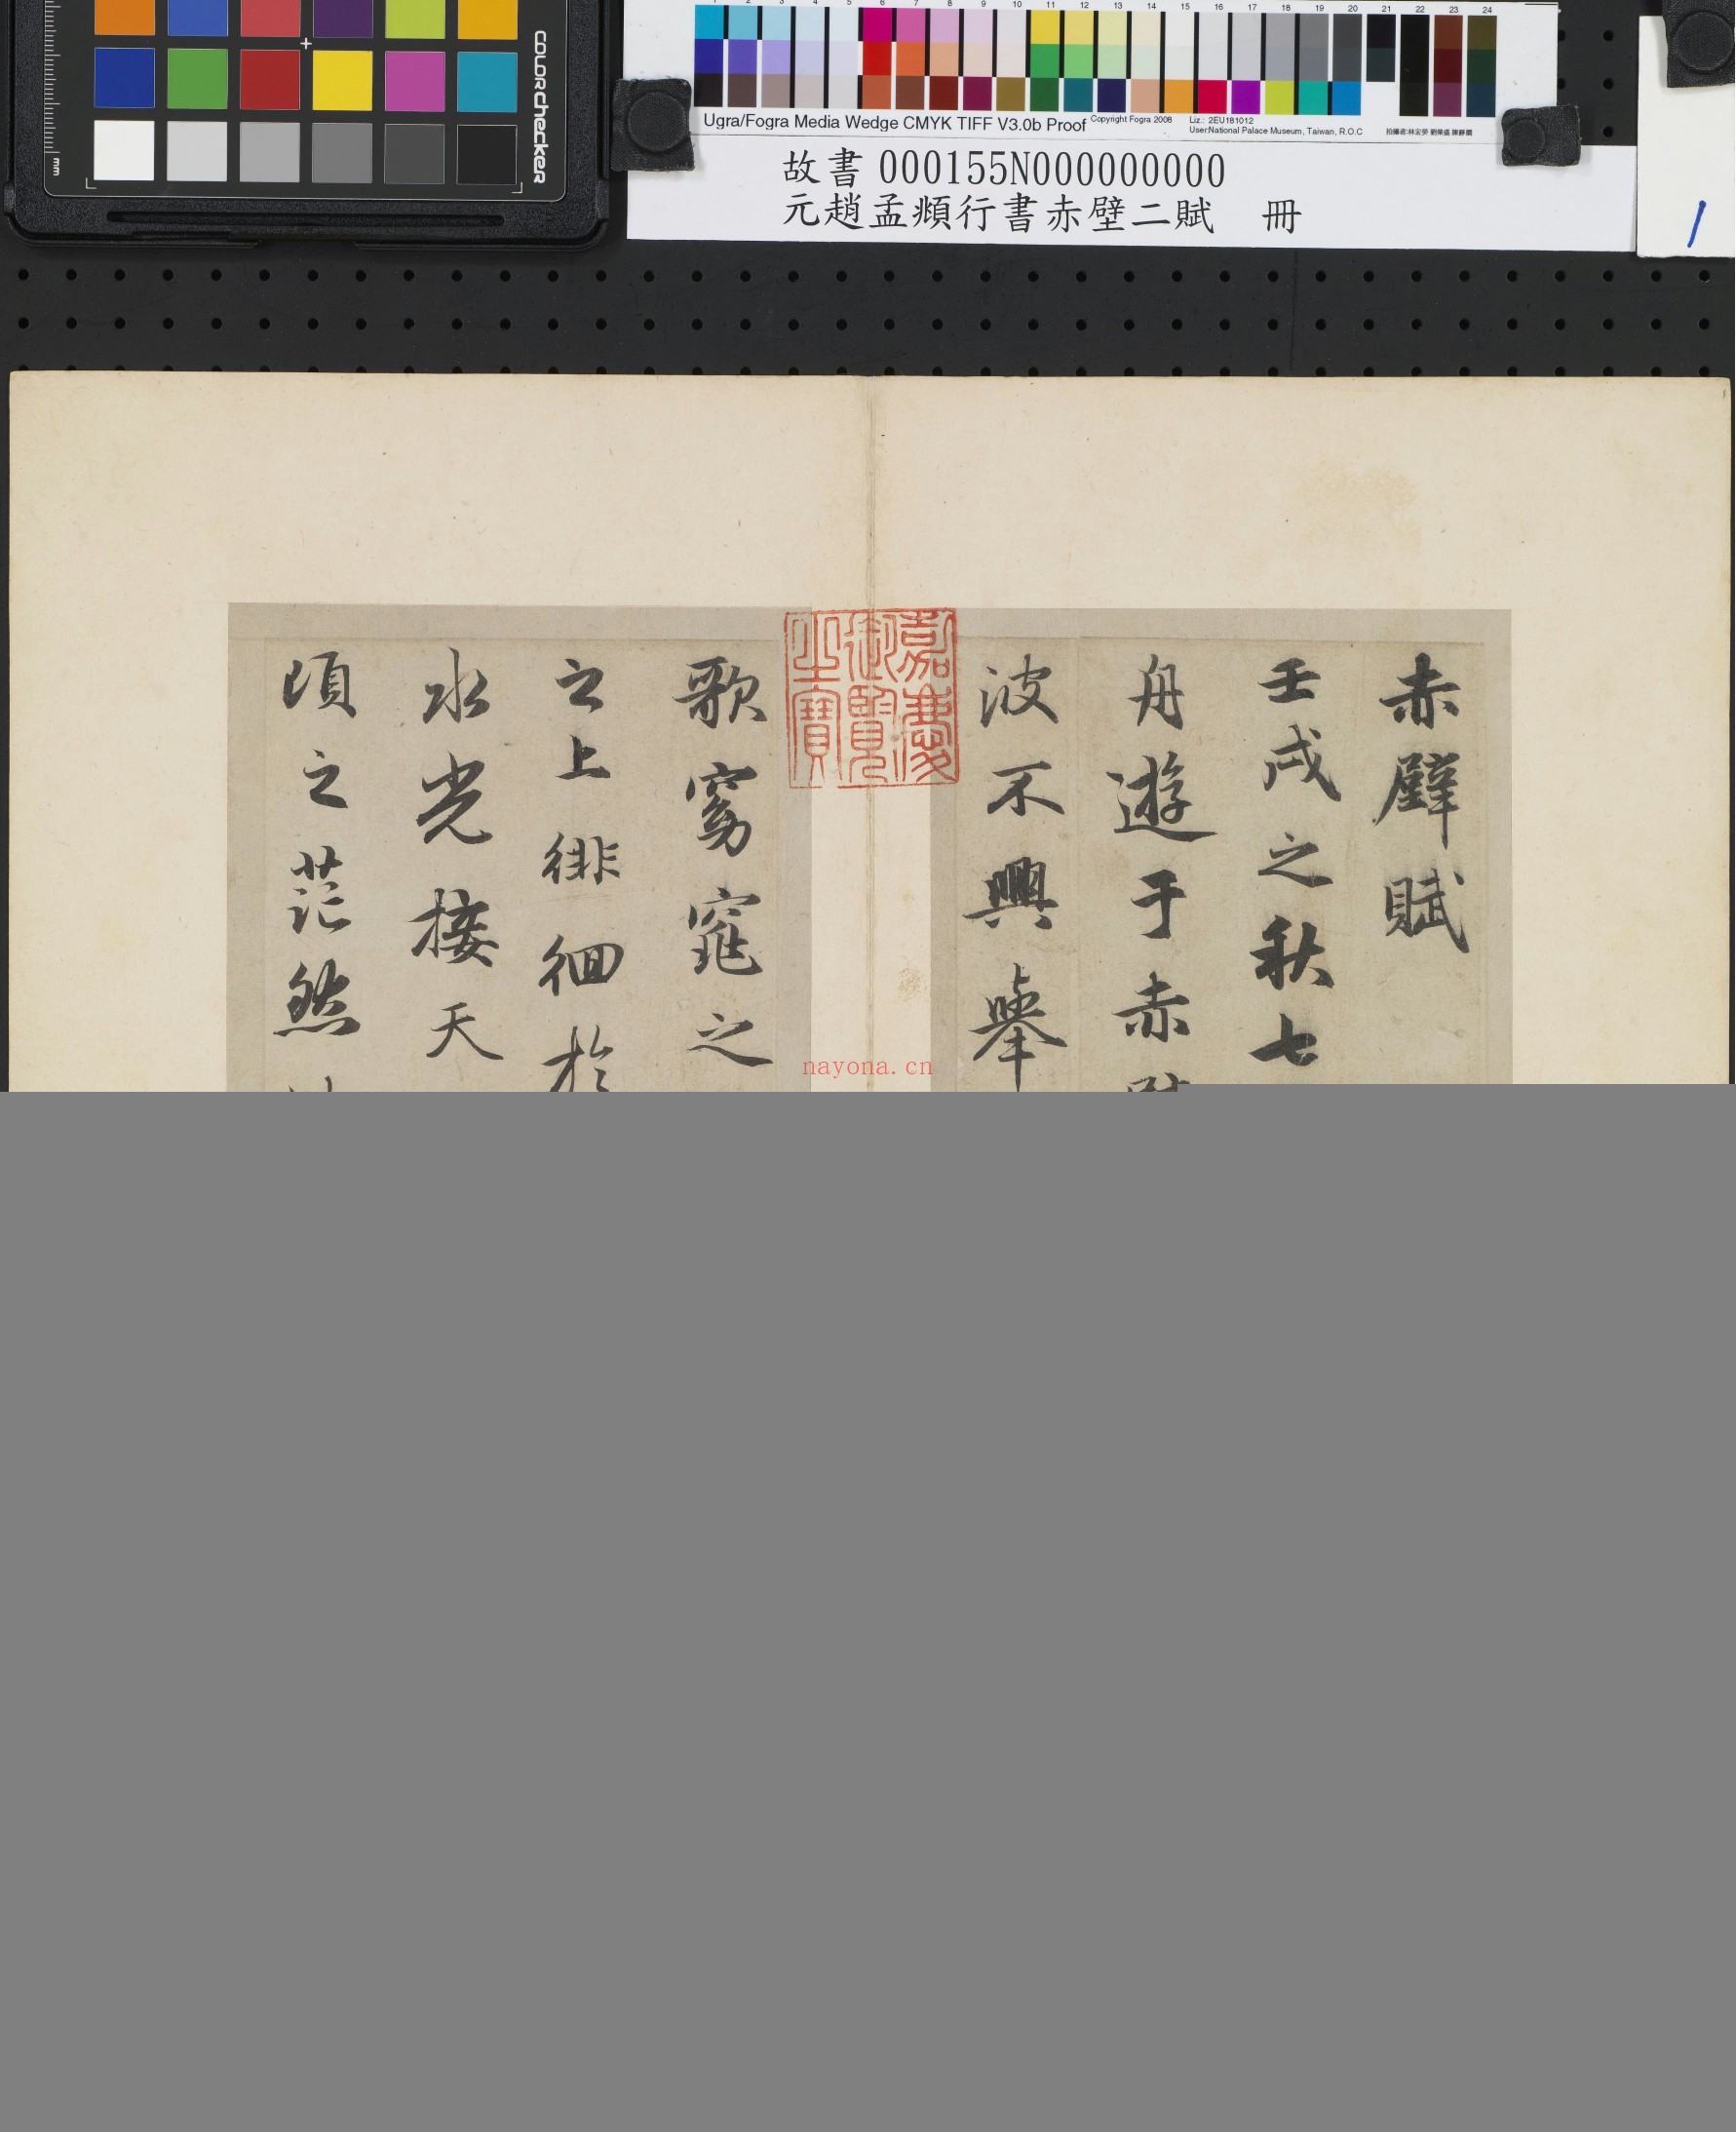 colorchecker
mm
1 2 3 4 5 6 7 8 9 10 11 12 13 14 15 16 17 18 19 20 21 22 23 24
Ugra/Fogra Media Wedge CMYK TIFF V3.0b Proof
Copyright Fogra 2008
Liz.: 2EU181012
User:National Palace Museum, Taiwan, R.O.C
故書 000155N000000000
元趙孟頫行書赤壁二賦 冊
1
赤壁賦
壬戌之秋七
舟遊于赤
波不興舉
嘉慶
御覽
之寶
歌窈窕之
之上徘徊於
水光接天
頃之茫然
nayona.cn